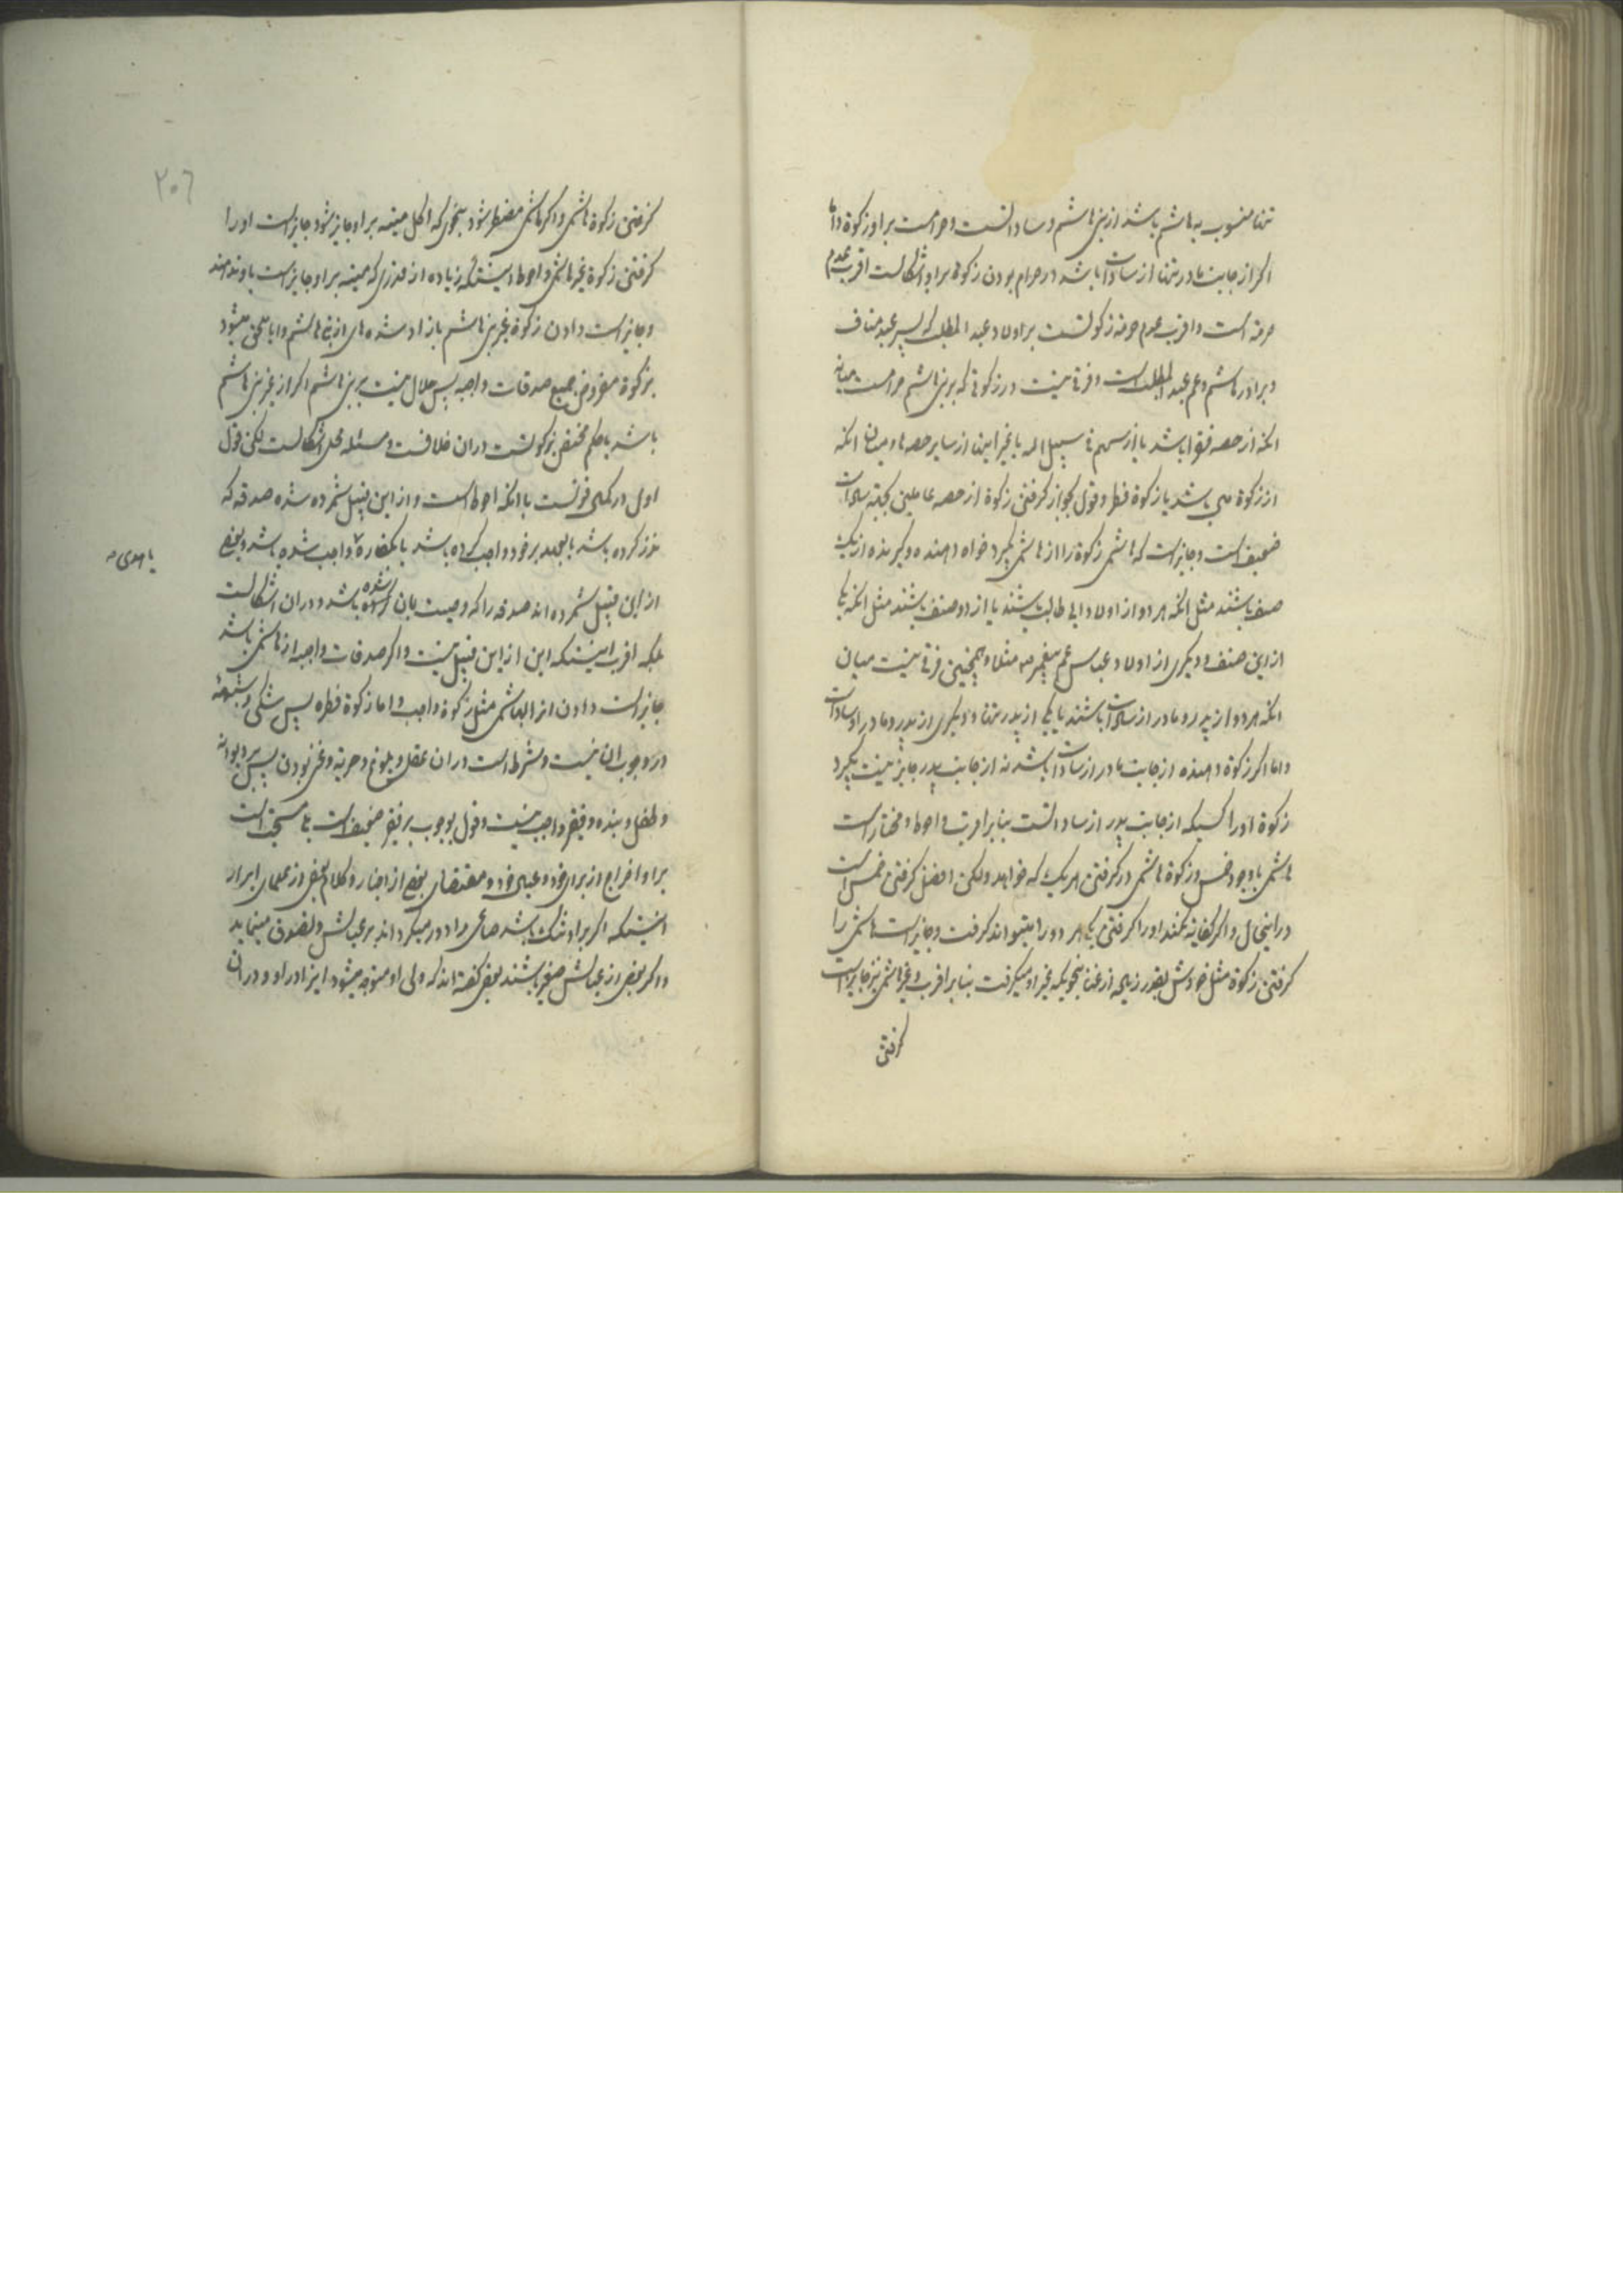 تنها منسوب به هاشم باشد از بنی هاشم و ساداتست و حرامست بر او زکوة و اما
اکر از جانب مادر تنها از سادات باشد در حرام بودن زکوة بر او اشکالست اقرب عدم
حرمة است و اقرب عدم حرمة زکوتست بر اولاد عبد المطلب که پسر عبد مناف
و برادر هاشم و عم عبد المطلب است و فرقی نیست در زکوتی که بر بنی هاشم حرامست میانه
انکه از حصه فقرا باشد یا از سهم فی سبیل الله یا غیر اینها از سایر حصه ها و میان انکه
از زکوة باشد یا زکوة فطر و قول بجواز کرفتن زکوة از حصه عاملین بجهة سادات
ضعیف است و جایز است که هاشمی زکوة را از هاشمی بکیرد خواه دهنده و کیرنده از یک
صنف باشند مثل انکه هر دو از اولاد ابی طالب باشند یا از دو صنف باشند مثل انکه یکی
از این صنف و دیکری از اولاد عباس عم پیغمبر ص مثلا و همچنین فرقی نیست میان
انکه هر دو از پدر و مادر از سادات باشند یا یکی از پدر تنها و دیکری از پدر و مادر از سادات
و اما اکر زکوة دهنده از جانب مادر از سادات باشد نه از جانب پدر جایز نیست بکیرد
زکوة او را کسیکه از جانب پدر از ساداتست بنابر اقرب و احوط و مختار است
هاشمی با وجود خمس و زکوة هاشمی در کرفتن هر یک که خواهد و لکن افضل کرفتن خمس است
در اینحال و اکر کفایة نکند او را کرفتن یکی هر دو را میتواند کرفت و جایز است هاشمی را
کرفتن زکوة مثل خودش بقدر زیاده از غنا بنحویکه غیر او میکرفت بنابر اقرب و غیر هاشمی نیز جایز است
کرفتن
۳۰٦
کرفتن زکوة هاشمی و اکر هاشمی مضطر شود بنحوی که اکل میته بر او جایز شود جایز است او را
کرفتن زکوة غیر هاشمی و احوط اینستکه زیاده از قدری که میته بر او جایز است باو ندهند
و جایز است دادن زکوة غیر بنی هاشم بازاد شده های از بنی هاشم و ایا ملحق میشود
بزکوة مفروض جمیع صدقات واجبه پس حلال نیست بر بنی هاشم اکر از غیر بنی هاشم
باشد یا حکم مختص بزکوتست در ان خلافست و مسئله محل اشکالست لکن قول
اول در کمال قوتست با انکه احوط است و از این قبیل شمرده شده صدقه که
نذر کرده باشد یا بعهد بر خود واجب کرده باشد یا بکفارة واجب شده باشد و بعضی
یا هدی ص
از این قبیل شمرده اند صدقه را که وصیت بان کرده شده باشد و در ان اشکالست
بلکه اقرب اینستکه این از این قبیل نیست و اکر صدقات واجبه از هاشمی باشد
جایز است دادن انرا بهاشمی مثل زکوة واجب و اما زکوة فطره پس شکی و شبهه
در وجوب ان نیست و شرط است در ان عقل و بلوغ و حریة و غنی بودن پس بر دیوانه
و طفل و بنده و فقیر واجب نیست و قول بوجوب بر فقیر ضعیف است بلی مستحب است
بر او اخراج از برای خود و عیال خود و مقتضای بعضی از اخبار و کلام بعضی از علمای ابرار
اینستکه اکر بر او تنک باشد صاعی را دور میکرداند بر عیالش و تصدق مینماید
و اکر بعضی از عیالش صغیر باشند بعضی کفته اند که ولی او متوجه میشود اینرا در او و در ان